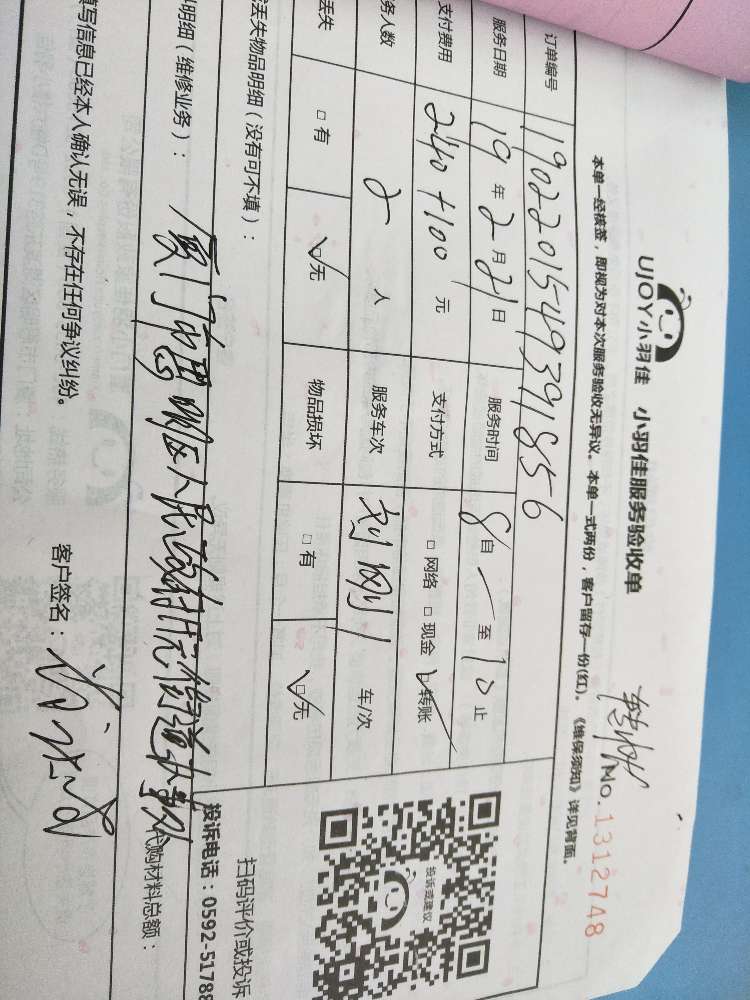 UJOY小羽佳 小羽佳服务验收单
No.1312748
本单一经核签，即视为对本次服务验收无异议。本单一式两份，客户留存一份(红)。《维保须知》详见背面。
订单编号 190220154939 1856
服务日期 19年2月21日 服务时间 8自 一 至10止
支付费用 240+100元 支付方式 □网络 □现金 ☑转账
务人数 2人 服务车次 刘刚 车/次
丢失 □有 ☑无 物品损坏 □有 ☑无
丢失物品明细（没有可不填）：
扫码评价或投诉
投诉或建议
投诉电话：0592-51788
明细（维修业务）：
代购材料总额：
填写信息已经本人确认无误，不存在任何争议纠纷。
客户签名：